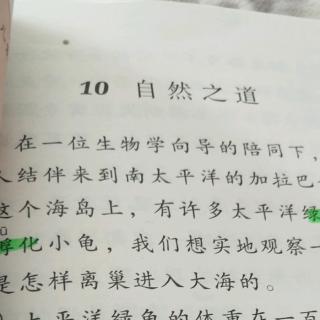 10 自然之道
在一位生物学向导的陪同下，
人结伴来到南太平洋的加拉巴
这个海岛上，有许多太平洋绿
孵化小龟，我们想实地观察一
是怎样离巢进入大海的。
太平洋绿龟的体重在一百